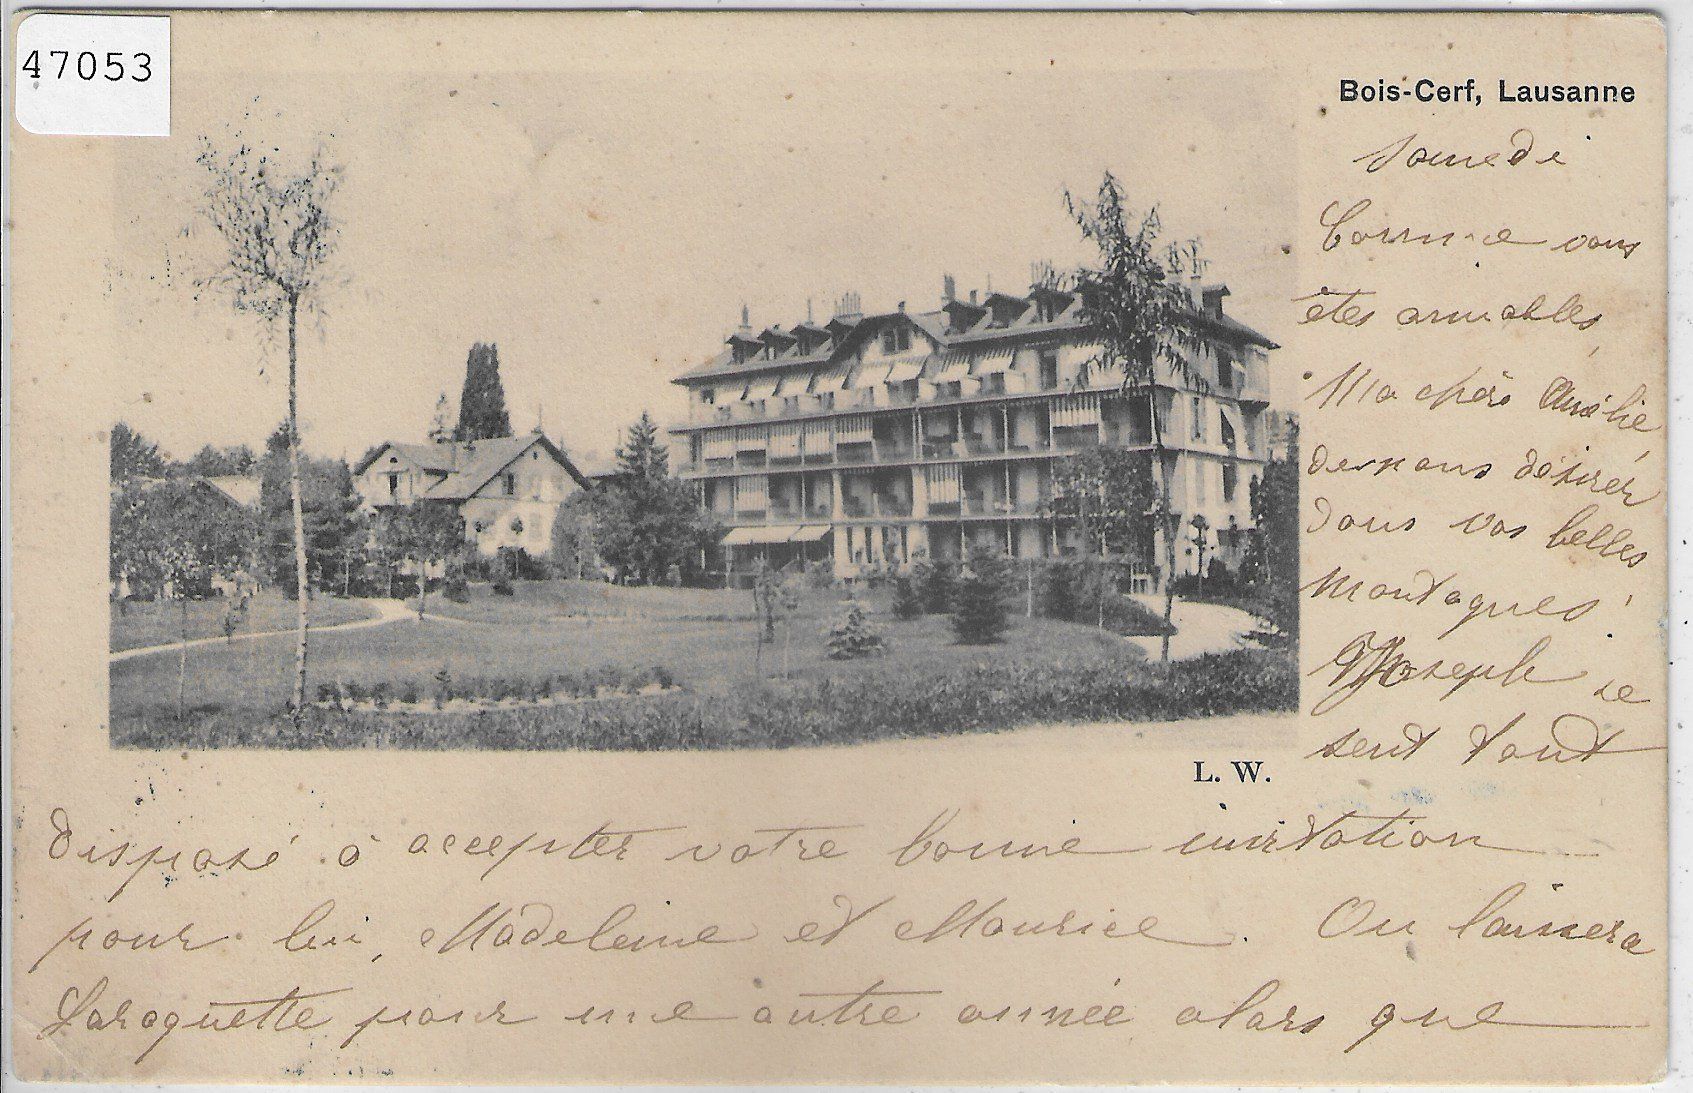 47053
Bois-Cerf, Lausanne
Samedi
Comme vous
êtes aimables,
Ma chère Amélie
de nous désirer
dans vos belles
montagnes!
Joseph se
sent tout
L. W.
disposé à accepter votre bonne invitation
pour lui, Madeleine et Maurice. On laissera
Laroquette pour une autre année alors que